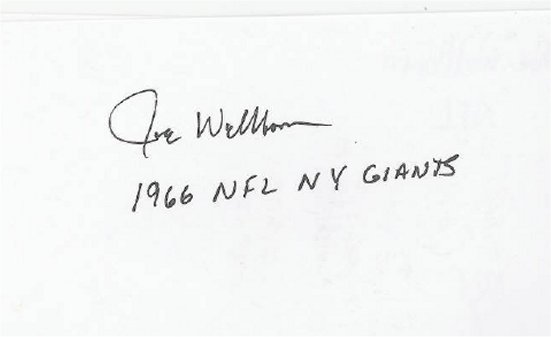 Joe Wellborn
1966 NFL NY GIANTS